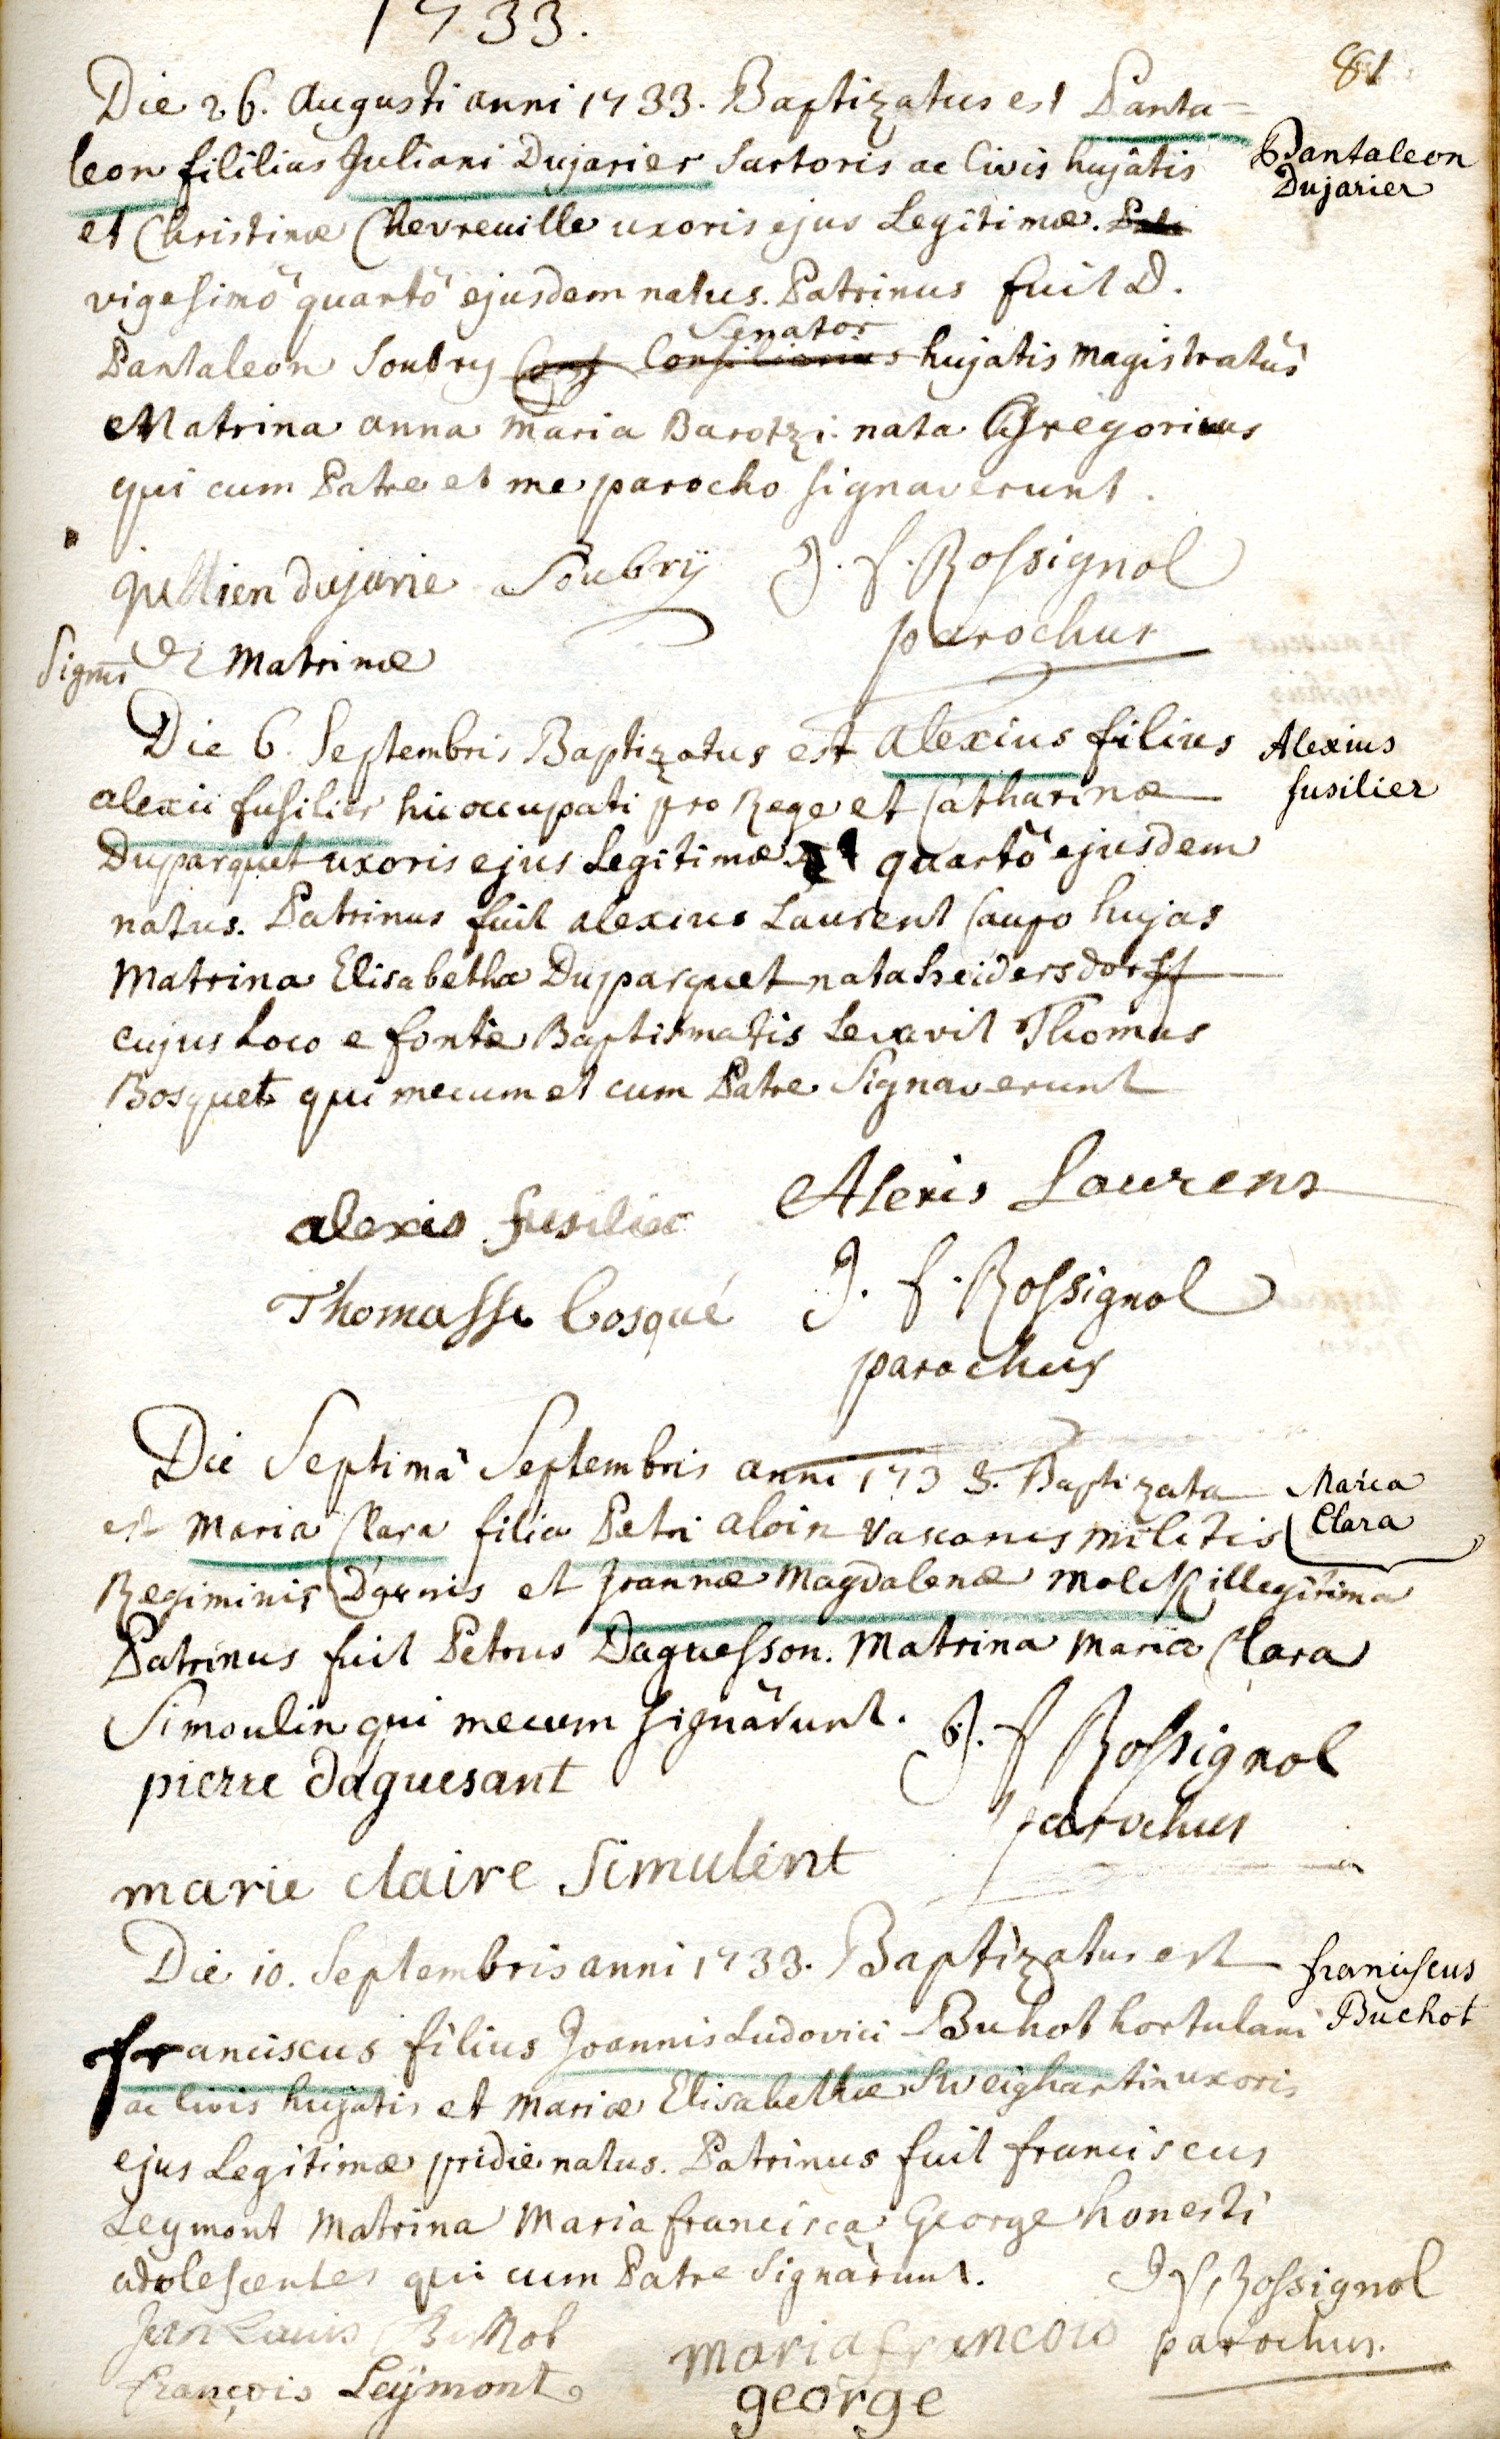 1733.
81
Die 26. Augusti anni 1733. Baptizatus est Panta=
leon fililius Juliani Dujarier Sartoris ac Civis hujatis
Pantaleon
Dujarier
et Christinæ Chevreuille uxoris ejus Legitimæ.
vigesimô quartô ejusdem natus. Patrinus fuit D.
Senator
Pantaleon Soubry Cons Consiliarius hujatis magistratûs
Matrina anna maria Barotzi nata Gregorius
qui cum Patre et me parocho signaverunt.
jullien dujarie Soubrÿ J. f. Rossignol
parochus
Signū Matrinæ
Die 6. Septembris Baptizatus est alexius filius
Alexius
fusilier
alexii fusilier hic occupati pro Rege et Catharinæ
Duparquet uxoris ejus Legitimæ quartô ejusdem
natus. Patrinus fuit alexius Laurent Caupo hujas
Matrina Elisabetha Duparquet nata heidersdorff
cujus Loco e fonte Baptismatis Levavit Thomas
Bosquet qui mecum et cum Patre Signaverunt
alexis fusilier Alexis Laurens
Thomasse bosqué J. f. Rossignol
parochus
Die Septimâ Septembris anni 1733. Baptizata
Maria
Clara
est Maria Clara filia Petri aloin Vasconis militis
Regiminis et Joannæ Magdalenæ illegitima
Patrinus fuit Petrus Daguesson. Matrina Maria Clara
Simoulin qui mecum signârunt. J. f Rossignol
pierre daguesant
parochus
marie claire Simulint
Die 10. Septembris anni 1733. Baptizatus est
franciscus
Buchot
franciscus filius Joannis Ludovici Buhot hortulani
ac Civis hujatis et Mariæ Elisabethæ Sweighartin uxoris
ejus Legitimæ pridie natus. Patrinus fuit franciscus
Leymont Matrina Maria francisca George honesti
adolescentes qui cum Patre Signârunt. J f Rossignol
Jean Louis Buhot
maria francois parochus.
François Leÿmont
george